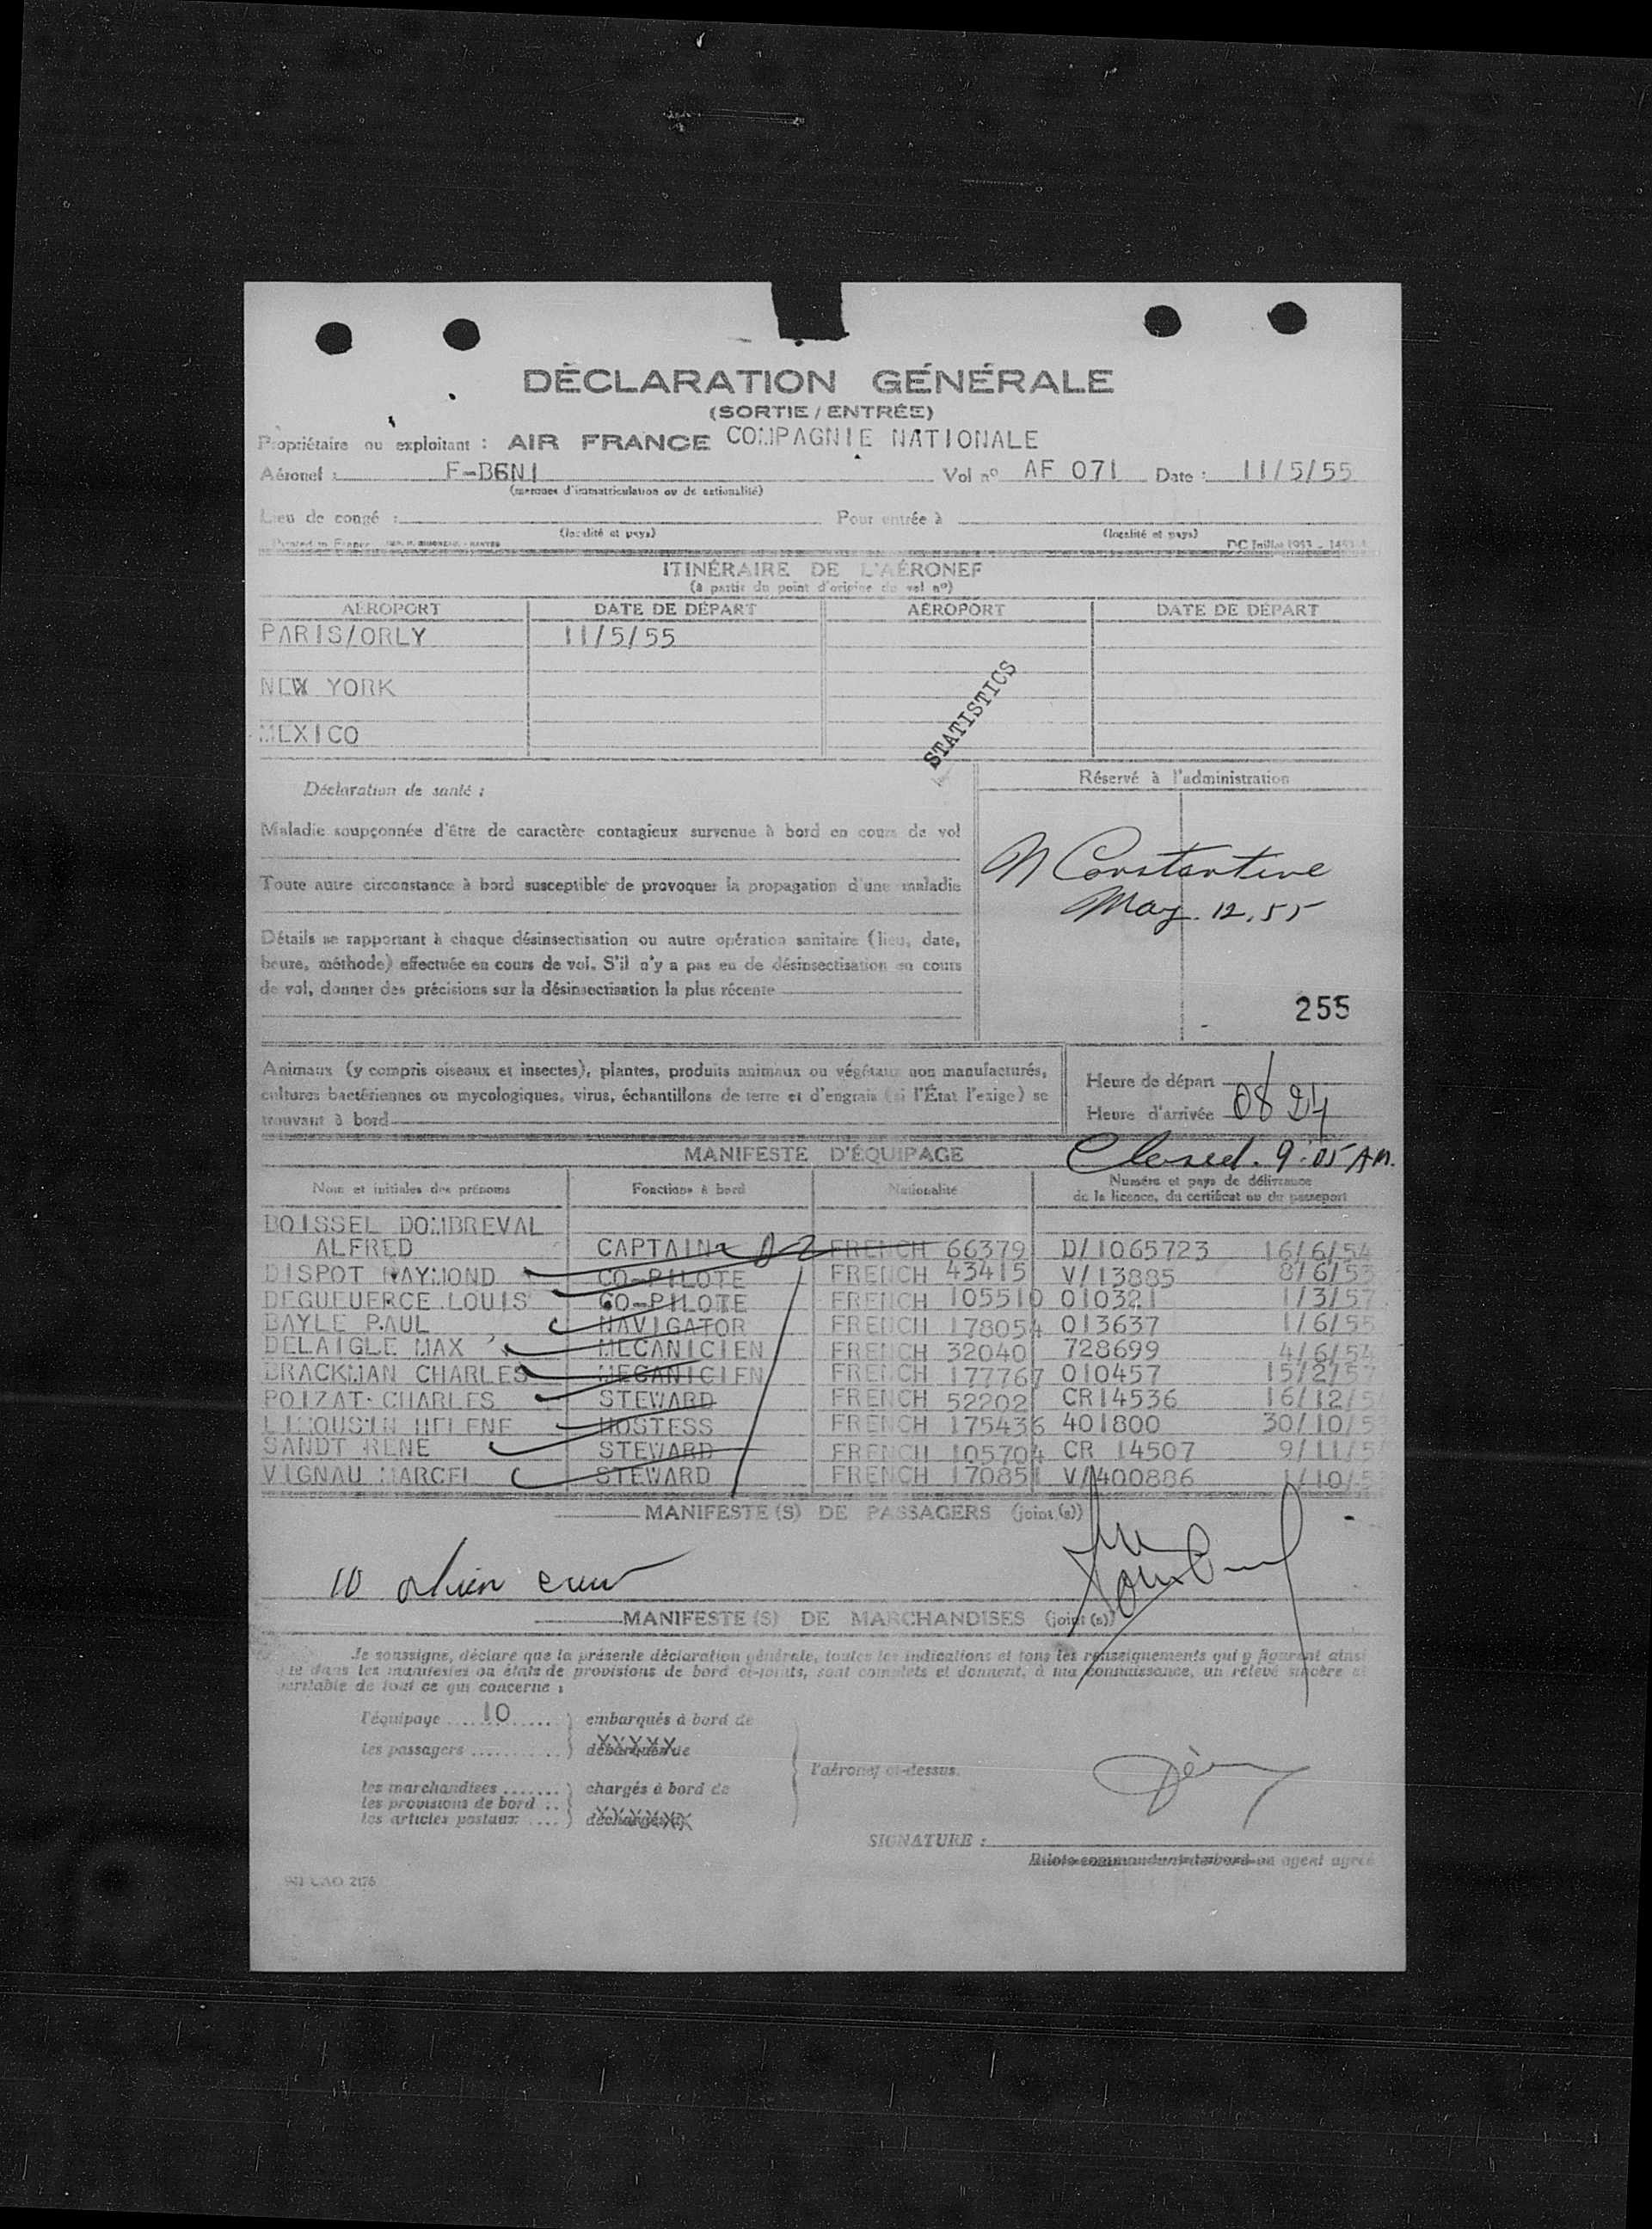 DÉCLARATION GÉNÉRALE
(SORTIE / ENTRÉE)
Propriétaire ou exploitant : AIR FRANCE COMPAGNIE NATIONALE
Aéronef : F-BGNI Vol nº AF 071 Date : 11/5/55
(marques d'immatriculation ou de nationalité)
Lieu de congé : Pour entrée à
(localité et pays) (localité et pays)
Printed in France
ITINÉRAIRE DE L'AÉRONEF
(à partir du point d'origine du vol nº)
AÉROPORT DATE DE DÉPART AÉROPORT DATE DE DÉPART
PARIS/ORLY 11/5/55
NEW YORK
MEXICO
STATISTICS
Réservé à l'administration
Déclaration de santé :
Maladie soupçonnée d'être de caractère contagieux survenue à bord en cours de vol
N Constantine
Toute autre circonstance à bord susceptible de provoquer la propagation d'une maladie
May. 12. 55
Détails se rapportant à chaque désinsectisation ou autre opération sanitaire (lieu, date,
heure, méthode) effectuée en cours de vol. S'il n'y a pas eu de désinsectisation en cours
de vol, donner des précisions sur la désinsectisation la plus récente
255
Animaux (y compris oiseaux et insectes), plantes, produits animaux ou végétaux non manufacturés,
cultures bactériennes ou mycologiques, virus, échantillons de terre et d'engrais (si l'État l'exige) se
trouvant à bord
Heure de départ
Heure d'arrivée 0824
MANIFESTE D'ÉQUIPAGE Closed. 9:05 AM.
Nom et initiales des prénoms Fonctions à bord Nationalité Numéro et pays de délivrance
de la licence, du certificat ou du passeport
BOISSEL DOMBREVAL
ALFRED CAPTAIN FRENCH 66379 D/1065723 16/6/54
DISPOT RAYMOND CO-PILOTE FRENCH 43415 V/13885 8/6/5
DEGUEUERCE LOUIS CO-PILOTE FRENCH 105510 010321 1/3/57
BAYLE PAUL NAVIGATOR FRENCH 178054 013637 1/6/55
DELAIGLE MAX MECANICIEN FRENCH 32040 728699 4/6/54
BRACKMAN CHARLES MECANICIEN FRENCH 177767 010457 15/2/57
POIZAT CHARLES STEWARD FRENCH 52202 CR14536 16/12/5
LIMOUSIN HELENE HOSTESS FRENCH 175436 401800 30/10/5
SANDT RENE STEWARD FRENCH 105704 CR 14507 9/11/5
VIGNAU MARCEL STEWARD FRENCH 170851 V/400886 1/10/5
MANIFESTE (S) DE PASSAGERS (joint (s))
10 alien crew
MANIFESTE (S) DE MARCHANDISES (joint (s))
Je soussigné, déclare que la présente déclaration générale, toutes les indications et tous les renseignements qui y figurent ainsi
que dans les manifestes ou états de provisions de bord ci-joints, sont complets et donnent, à ma connaissance, un relevé sincère et
véritable de tout ce qui concerne :
l'équipage 10 embarqués à bord de
les passagers XXXXX
l'aéronef ci-dessus.
les marchandises chargés à bord de
les provisions de bord
les articles postaux XXXXXX
SIGNATURE :
Pilote commandant de bord ou agent agréé